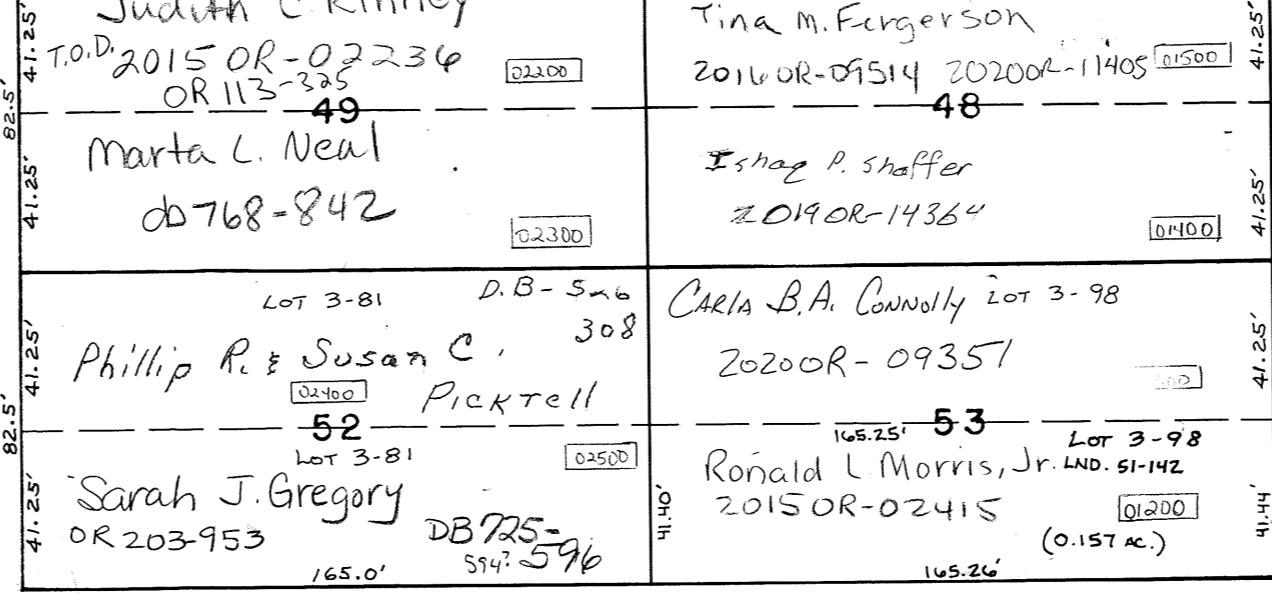 Judith C. Kinney
T.O.D. 2015 OR-02236
OR 113-325
02200
41.25'
82.5'
49
Marta L. Neal
db768-842
02300
41.25'
Tina M. Fergerson
2016 OR-09514 2020OR-11405
01500
41.25'
48
Ishaq P. Shaffer
2019 OR-14364
01400
41.25'
LOT 3-81
D.B-526
308
Phillip R. & Susan C.
Picktell
02400
41.25'
82.5'
52
LOT 3-81
02500
Sarah J. Gregory
OR 203-953
DB 725-
594? 596
41.25'
165.0'
CARLA B.A. CONNOLLY LOT 3-98
2020OR-09351
41.25'
53
165.25'
LOT 3-98
Ronald L Morris, Jr. LND. 51-142
2015 OR-02415
01200
(0.157 AC.)
41.40'
41.44'
165.26'